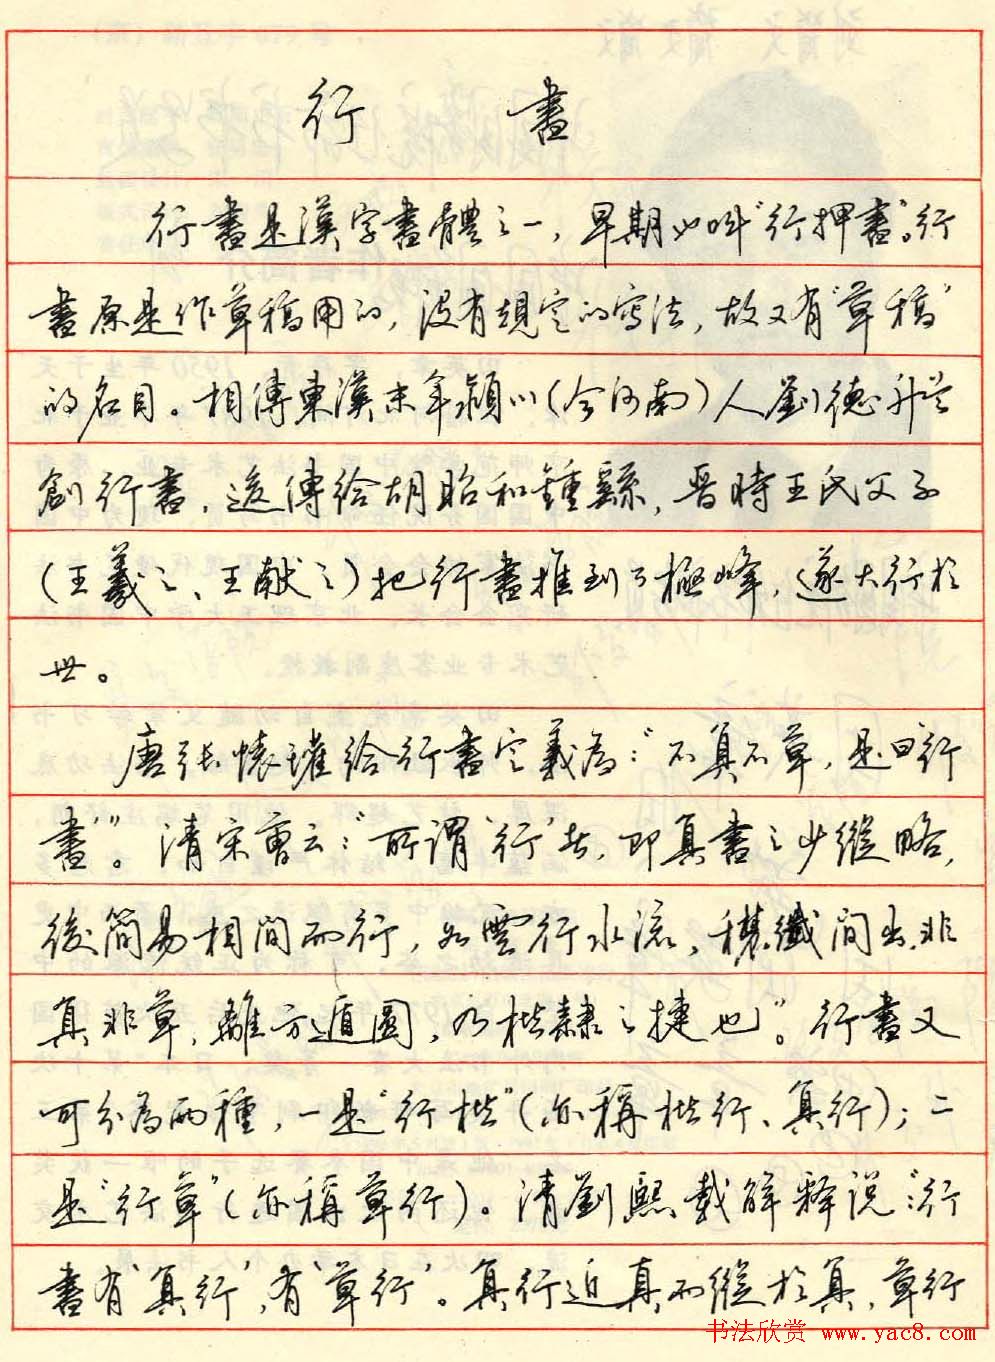 行書
行書是漢字書體之一，早期也叫“行押書”。行
書原是作草稿用的，没有規定的寫法，故又有“草稿”
的名目。相傳東漢末年潁川（今河南）人劉德升首
創行書，後傳給胡昭和鍾繇，晋時王氏父子
（王羲之、王献之）把行書推到了極峰，遂大行於
世。
唐張懷瓘給行書定義為：“不真不草，是曰行
書”。清宋曹云：“所謂‘行’者，即真書之少縱略，
後簡易相間而行，如雲行水流，穠纖間出，非
真非草，離方遁圓，乃楷隸之捷也”。行書又
可分為兩種，一是“行楷”（亦稱楷行、真行）；二
是“行草”（亦稱草行）。清劉熙載解释説：“行
書有‘真行’，有‘草行’。真行近真而縱於真，草行
书法欣赏 www.yac8.com